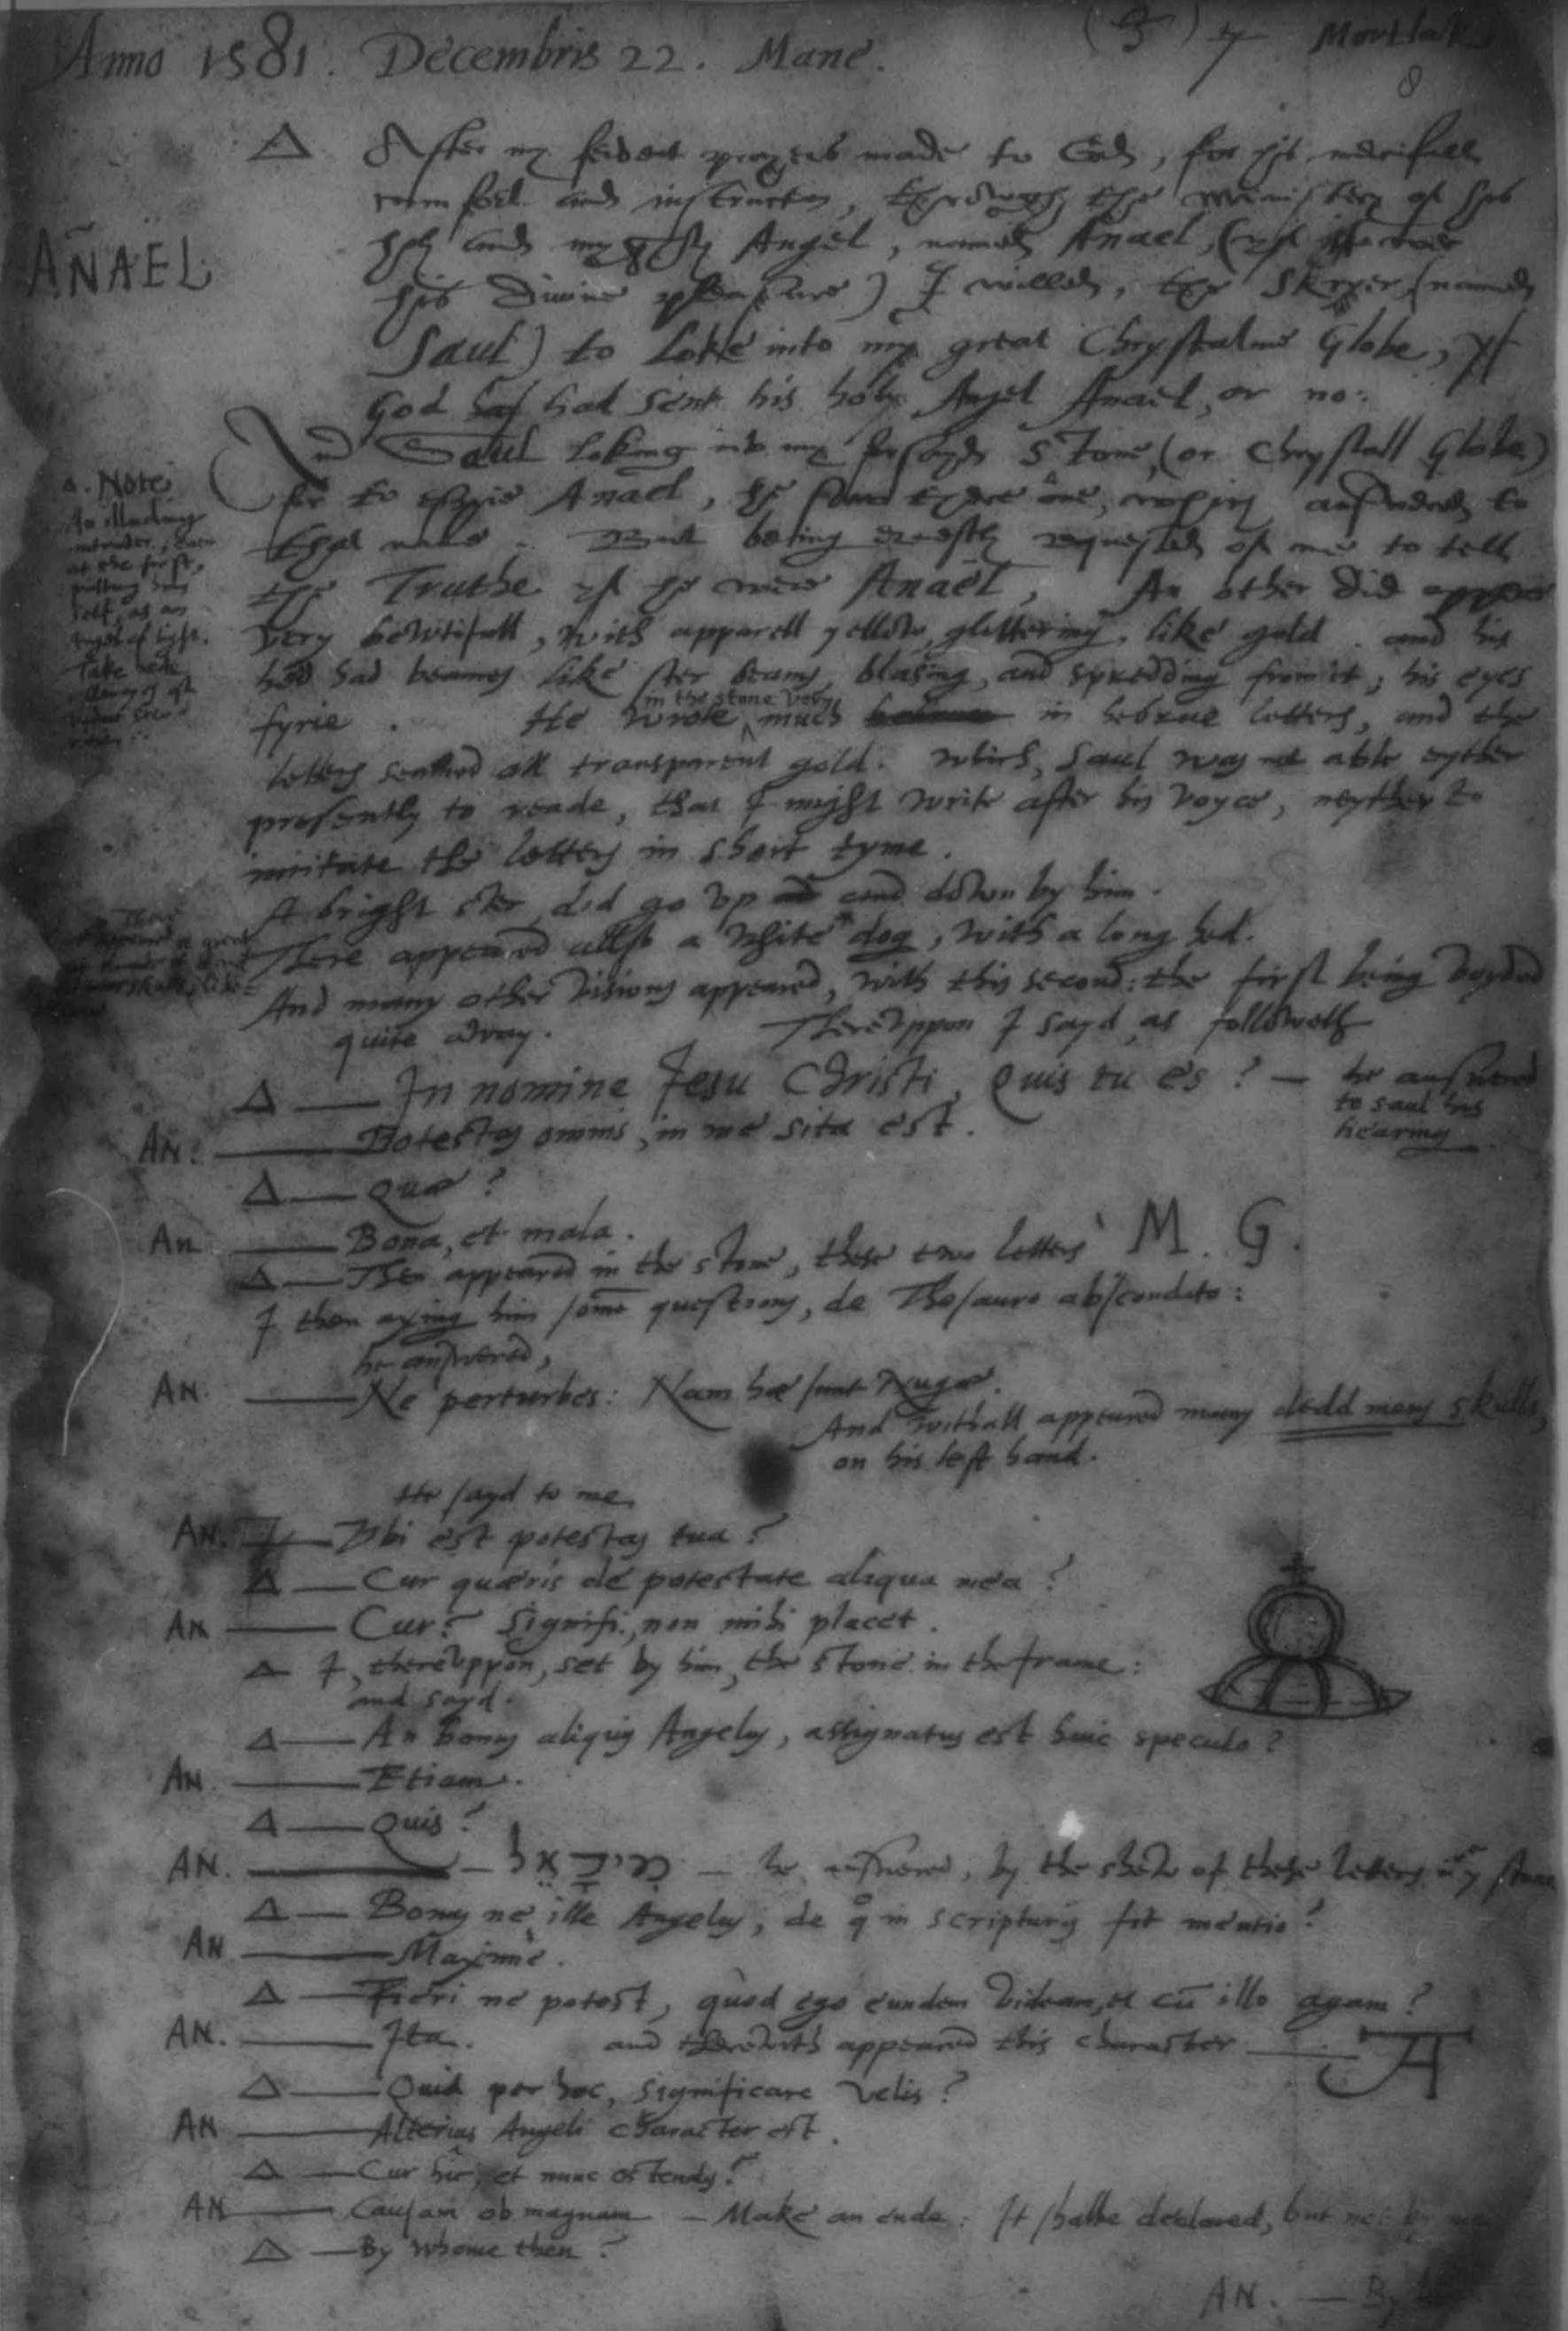 Anno 1581. Decembris 22. Mane. (3) 7 Mortlak
8
Δ After my fervent prayers made to God, for his mercifull
comfort and instruction, through the ministery of his
ANAEL
holy and mighty Angel, named Anael, (yf it wer
his divine pleasure) I willed, the Skryer, (named
Saul) to loke into my great Chrystaline Globe, yf
God had sent his holy Angel Anael, or no:
And Saul loking into my forsayde stone, (or Chrystall Globe)
for to espie Anael, he saw there one, which answered to
that name. But being ernestly requested of me to tell
the Truthe yf he were Anael, An other did appere
very bewtifull, with apparell yellow, glittering, like gold: and his
hed had beames like ster beames, blasing, and spredding from it; his eyes
fyrie. He wrote in the stone very much in hebrue letters, and the
letters seamed all transparent gold. which, Saul was not able eyther
presently to reade, that I might write after his voyce, neyther to
imitate the letters in short tyme.
Δ. Note
An illuding
intruder, even
at the first,
putting him
self, as an
Angel of light.
Take hede
allwayes of
A bright ster, did go up and down by him.
There appeared allso a white dog, with a long hed.
And many other visions appeared, with this second: the first being voyded
quite away. Thereuppon I sayd, as followeth
Δ — In nomine Jesu Christi, Quis tu es? — he answered
to saul his
hearing
AN: — Potestas omnis, in me sita est.
Δ — Quæ?
An — Bona, et mala.
Δ — Then appeared in the stone, these two letters M. G.
I then axing him some questions, de Thesauro abscondito:
he answered,
AN. — Ne perturbes: Nam hæ sunt Nugæ.
And withall appeared many dedd mens skulls,
on his left hand.
He sayd to me,
AN. — Ubi est potestas tua?
Δ — Cur quæris de potestate aliqua mea?
AN — Cur? Signifi., non mihi placet.
Δ I, thereuppon, set by him, the stone in the frame:
and sayd.
Δ — An bonus aliquis Angelus, assignatus est huic speculo?
AN. — Etiam.
Δ — Quis?
AN. — מיכאל — he answered, by the shew of these letters in yͤ stone
Δ — Bonus ne ille Angelus, de q̊ in scripturis fit mentio?
AN — Maxime.
Δ — Fieri ne potest, quod ego eundem videam, et cū illo agam?
AN. — Ita. and therewith appeared this character — A
Δ — Quid per hoc, significare velis?
AN — Alterius Angeli character est.
Δ — Cur hic, et nunc ostendis?
AN — Causam ob magnam — Make an ende: It shalbe declared, but not by
Δ — By whome then?
AN. — By